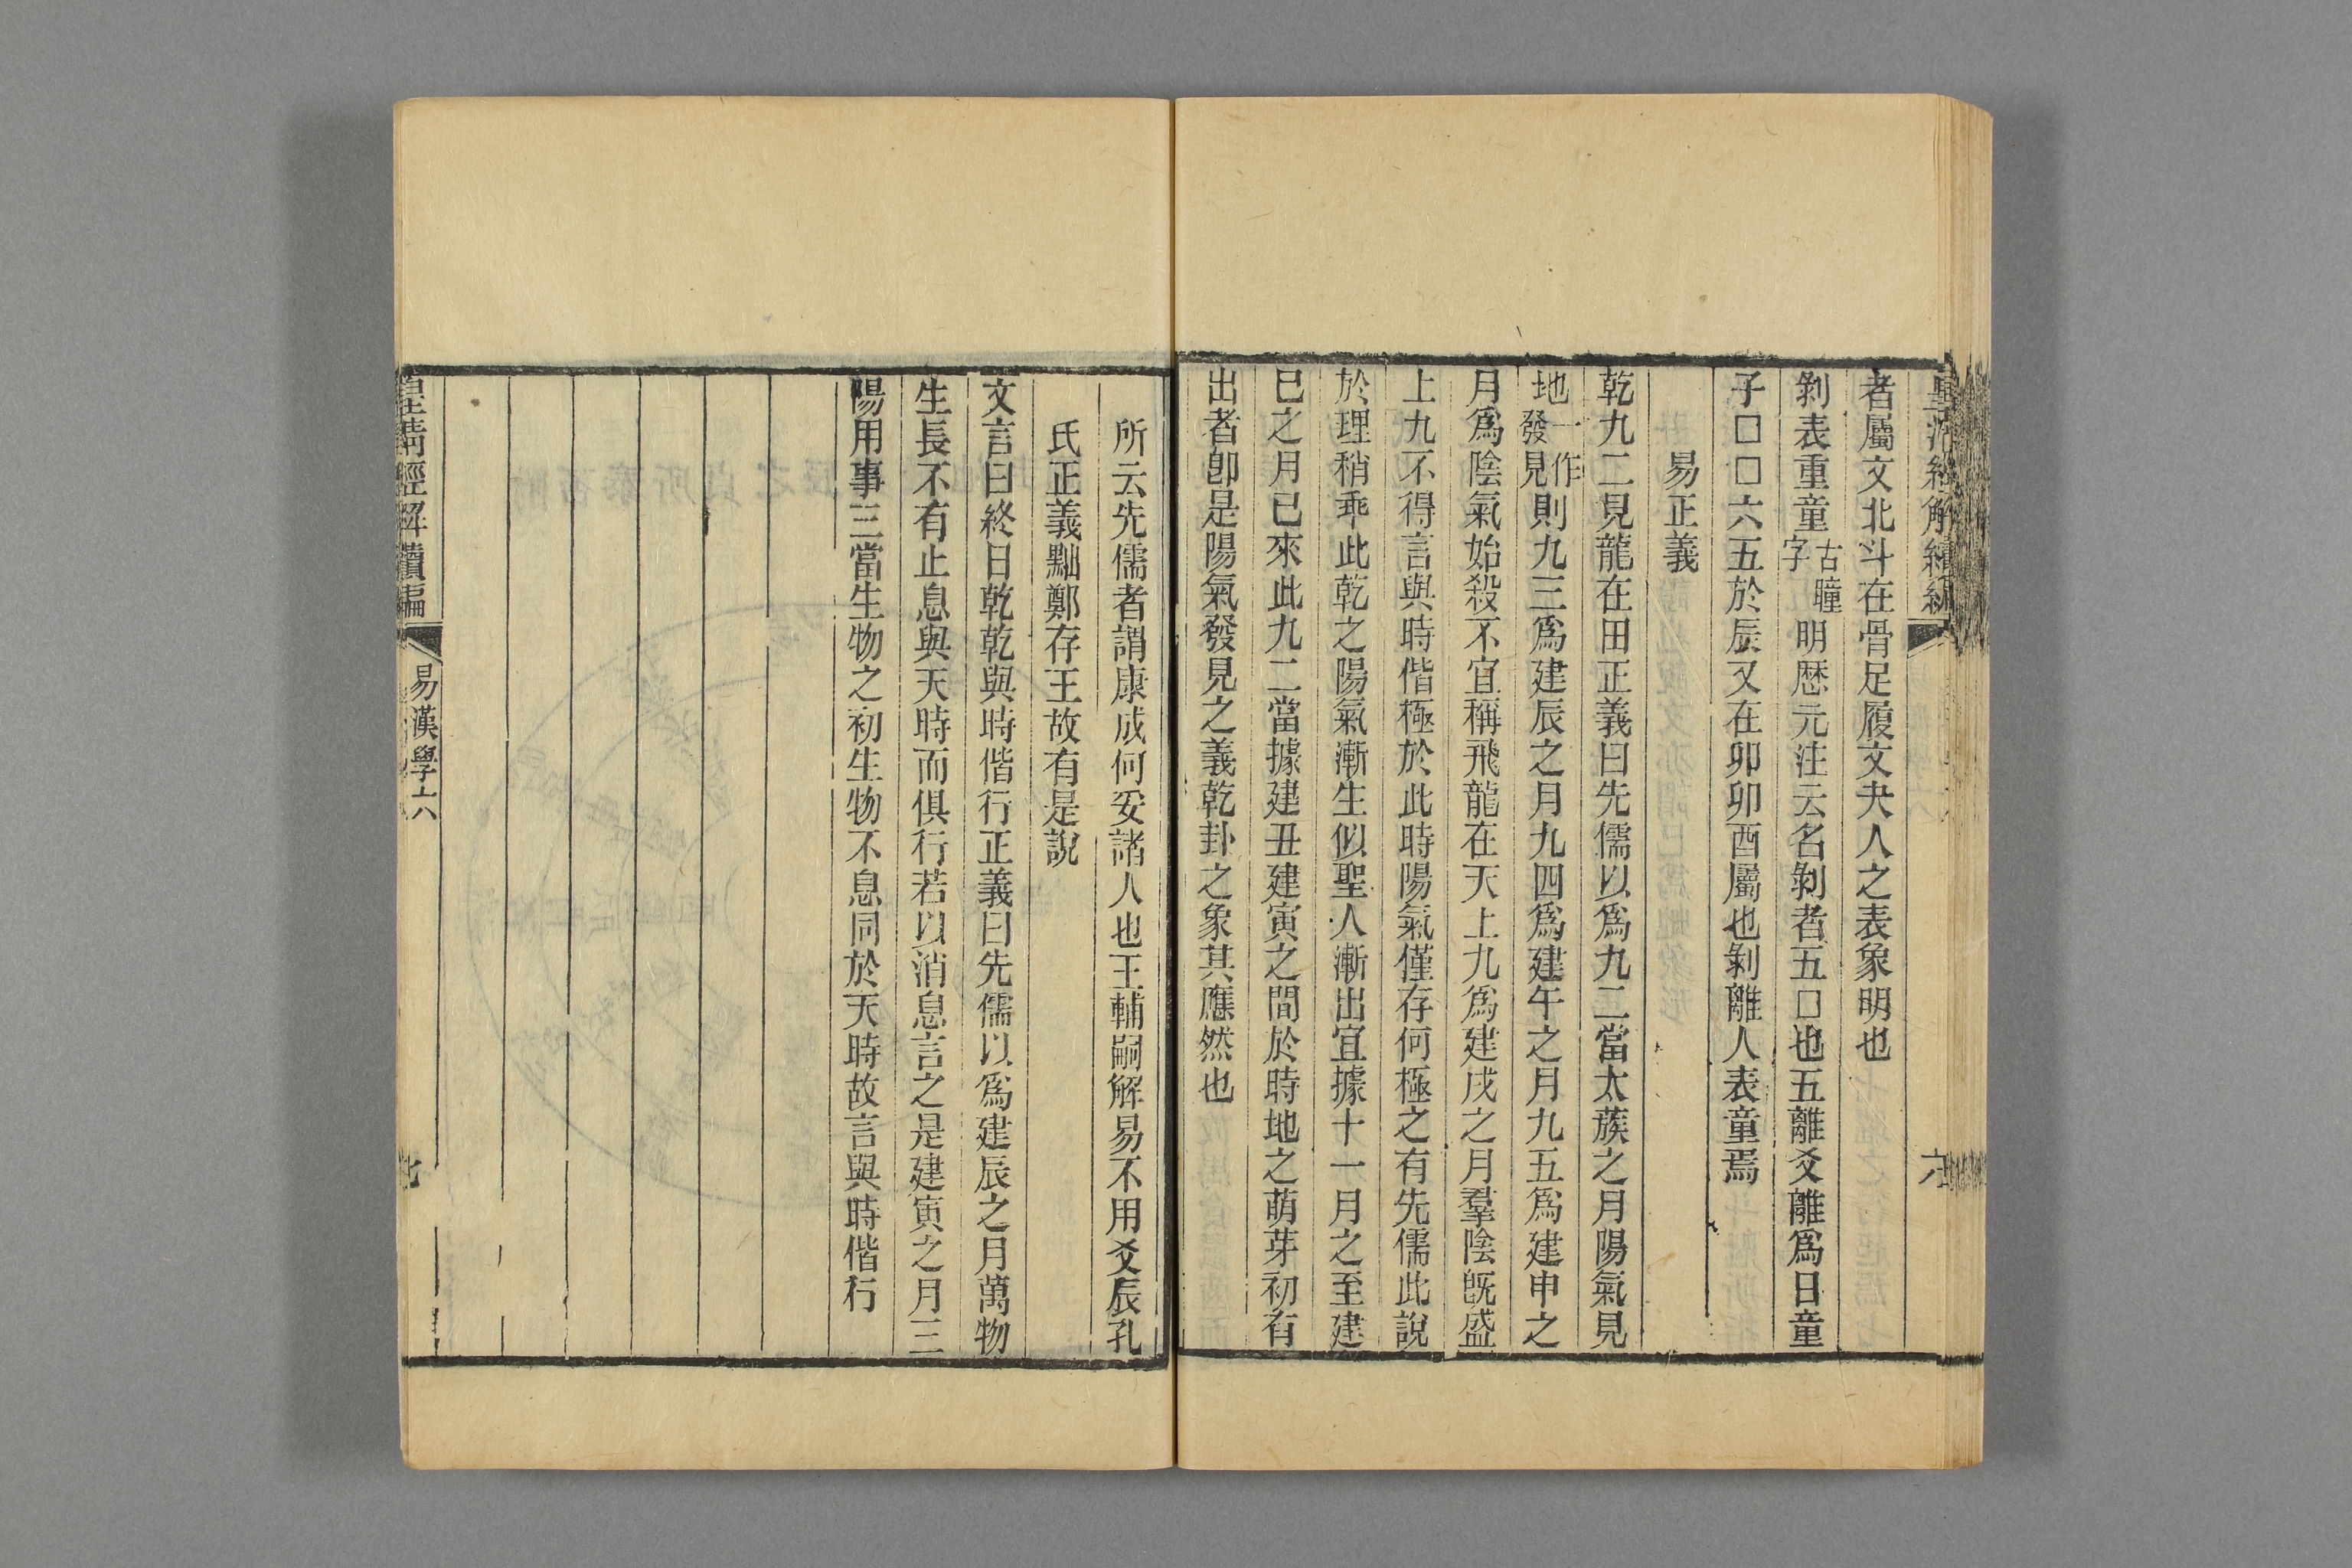 皇清經解續編
六
者屬文北斗在骨足履文夬人之表象明也
剝表重童古瞳字明歷元注云名剝者五□也五離爻離爲日童
子□□六五於辰又在卯卯酉屬也剝離人表童焉
易正義
乾九二見龍在田正義曰先儒以爲九二當太蔟之月陽氣見
地一作發見則九三爲建辰之月九四爲建午之月九五爲建申之
月爲陰氣始殺不宜稱飛龍在天上九爲建戌之月羣陰旣盛
上九不得言與時偕極於此時陽氣僅存何極之有先儒此說
於理稍乖此乾之陽氣漸生似聖人漸出宜據十一月之至建
巳之月已來此九二當據建丑建寅之間於時地之萌芽初有
出者卽是陽氣發見之義乾卦之象其應然也
所云先儒者謂康成何妥諸人也王輔嗣解易不用爻辰孔
氏正義黜鄭存王故有是說
文言曰終日乾乾與時偕行正義曰先儒以爲建辰之月萬物
生長不有止息與天時而俱行若以消息言之是建寅之月三
陽用事三當生物之初生物不息同於天時故言與時偕行
皇清經解續編
易漢學六
七